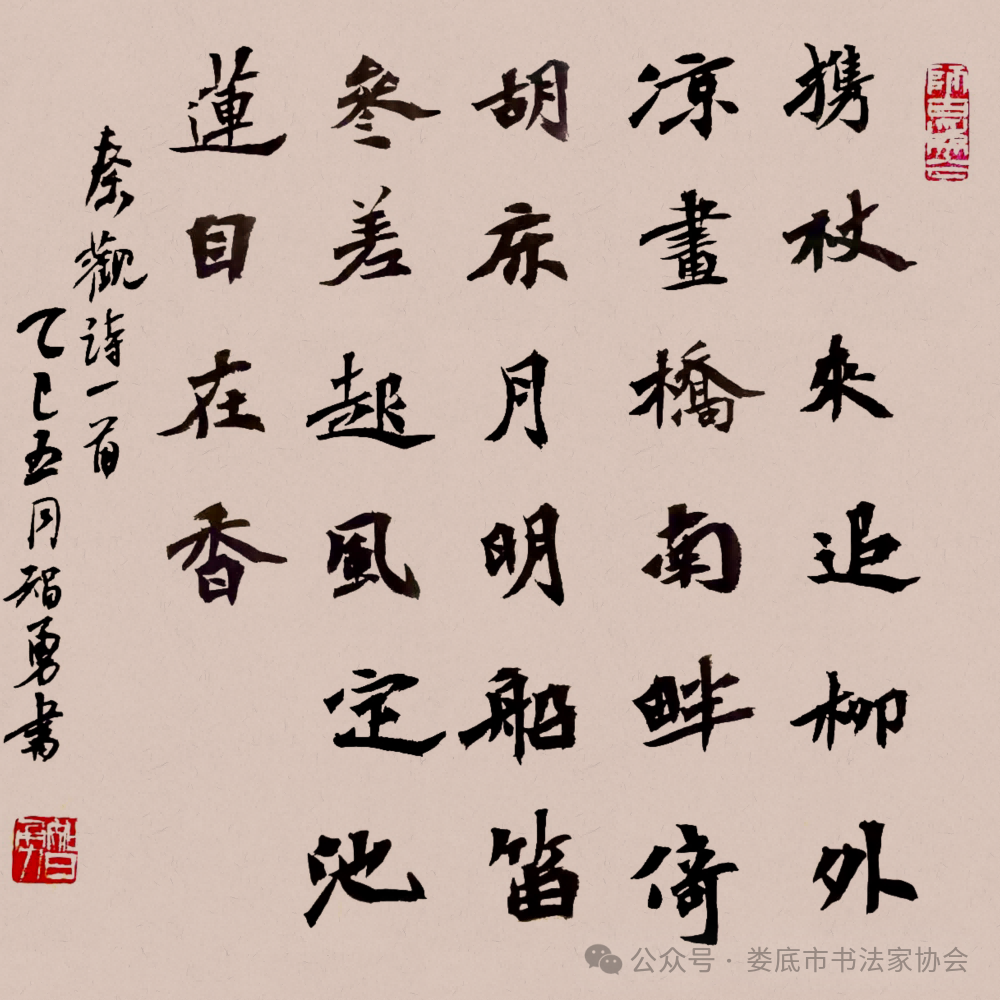 携杖來追柳外
凉畫橋南畔倚
胡床月明船笛
參差起風定池
蓮自在香
秦觀詩一首
乙巳五月智勇書
智勇
公众号·娄底市书法家协会